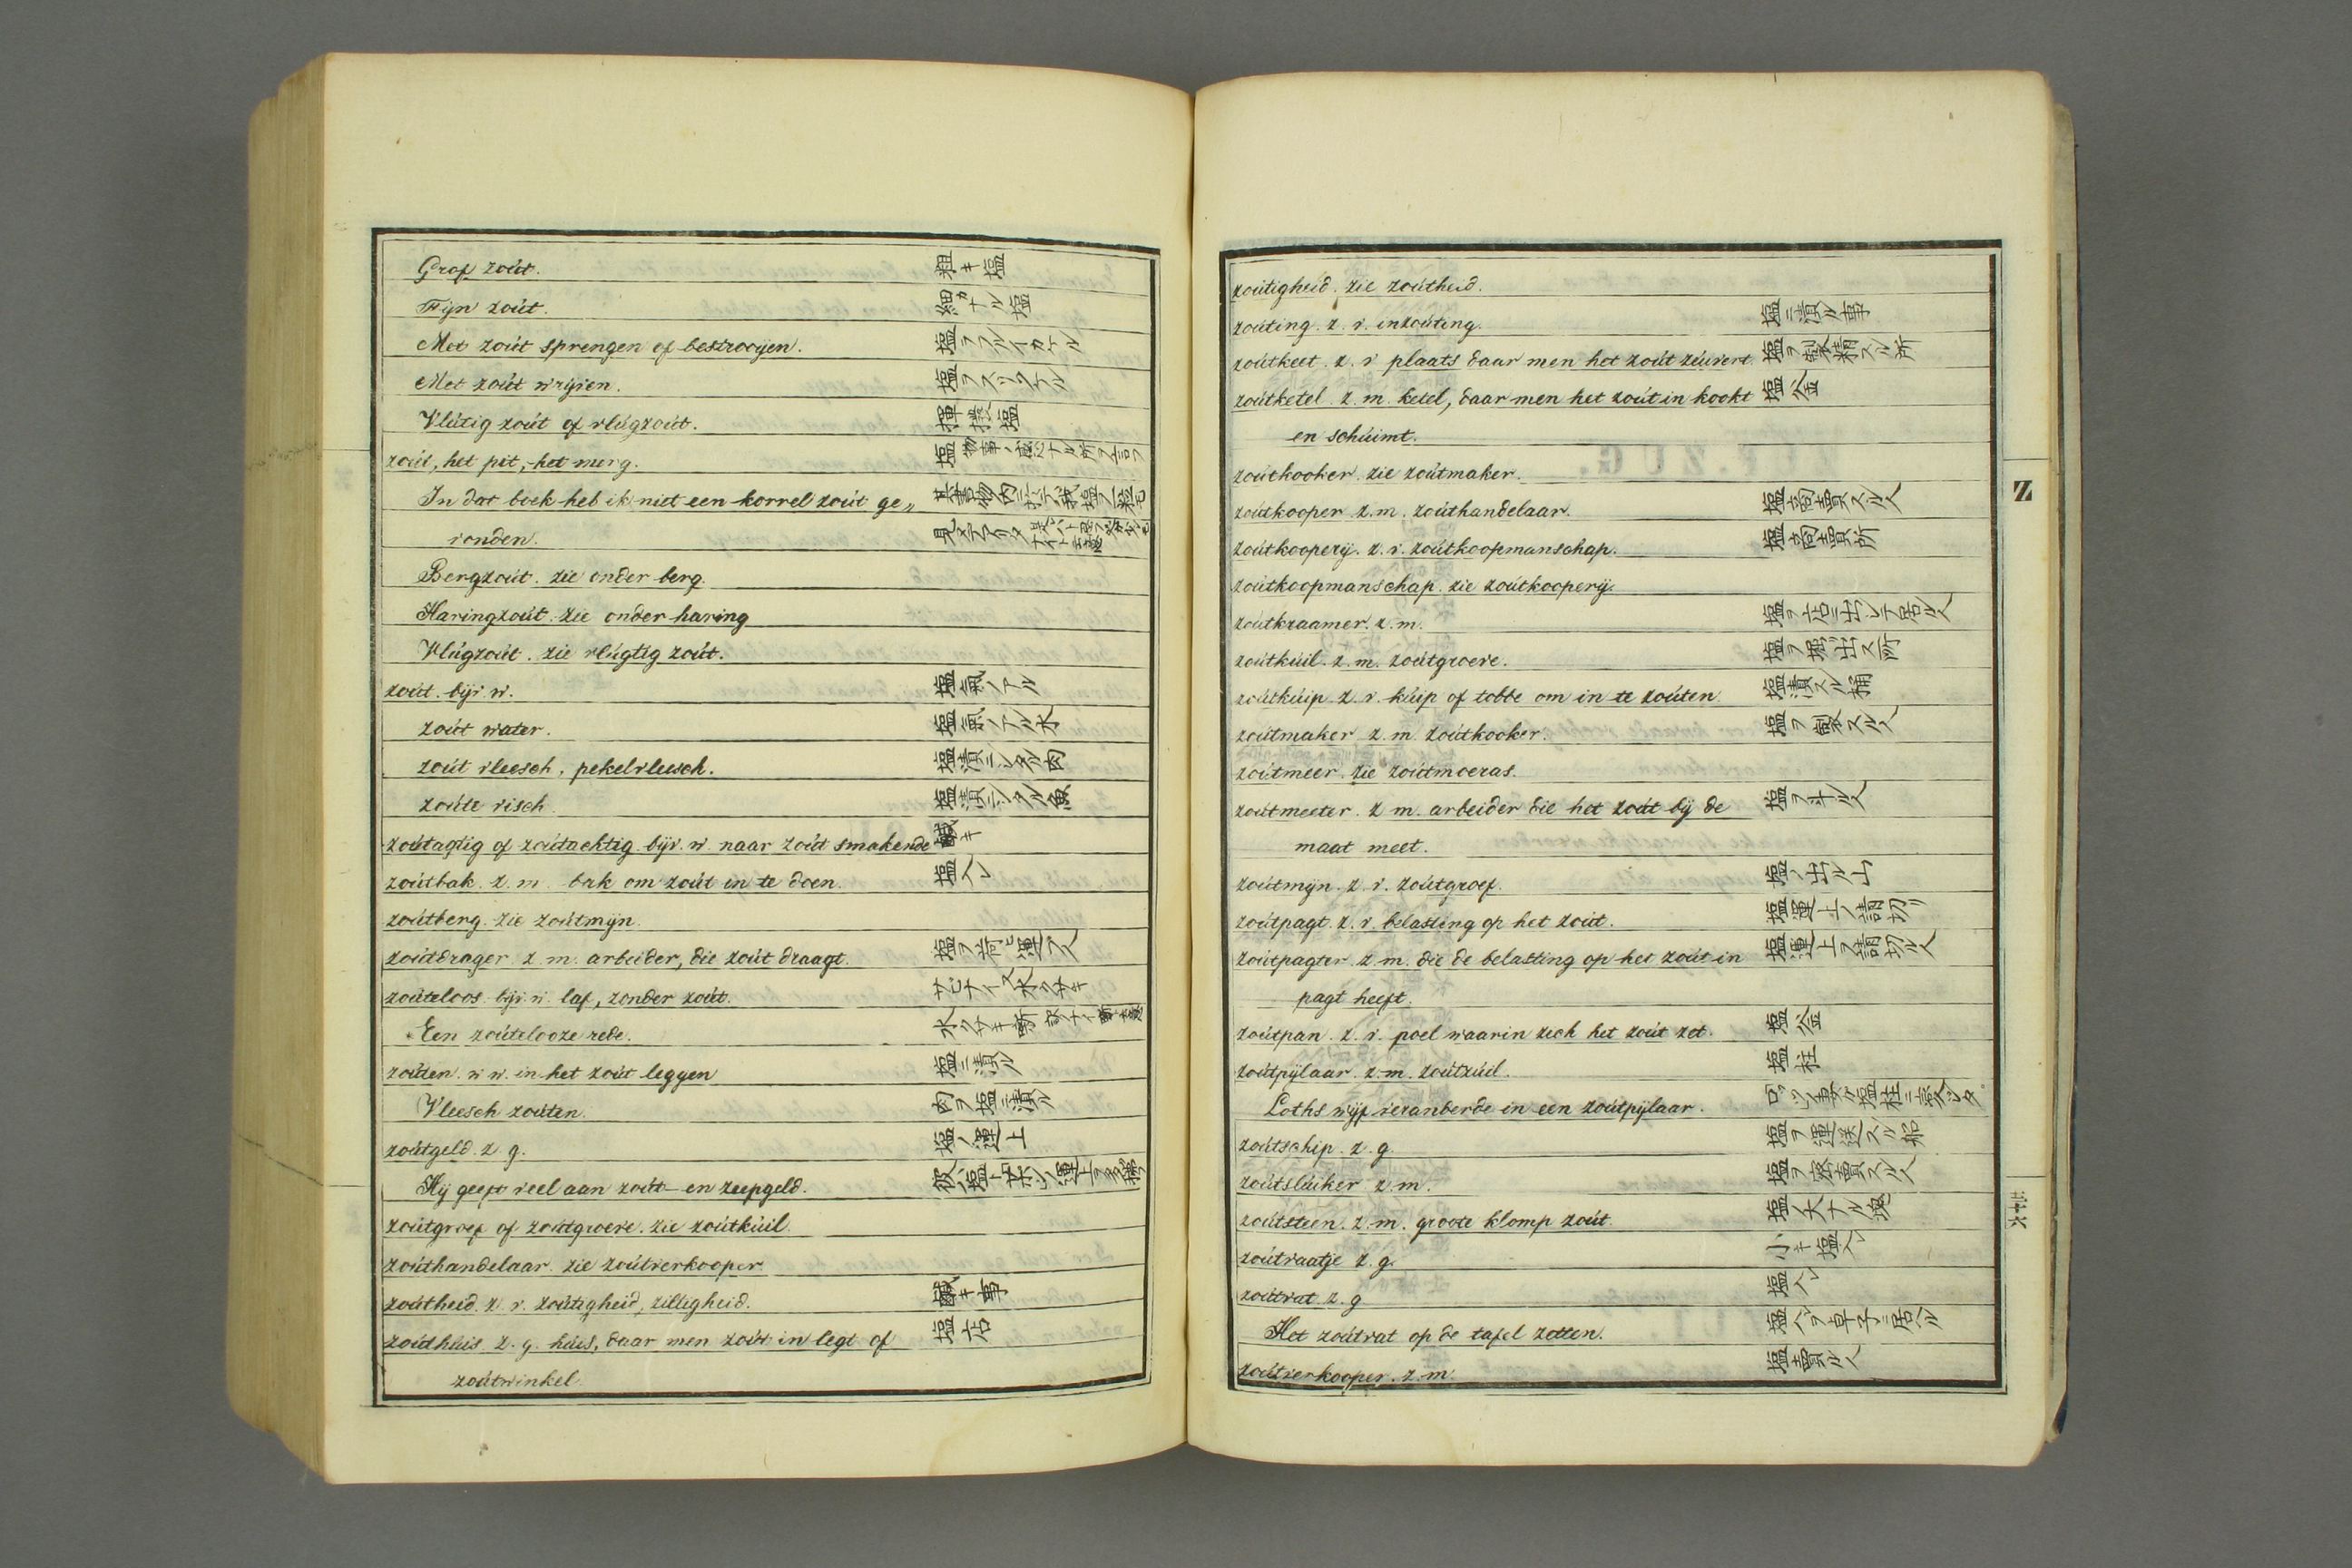 Grof zoút. 粗キ塩
Fijn zoút. 細カナル塩
Met zoút sprengen of bestrooijen. 塩ヲフルイカケル
Met zoút wrijven. 塩ヲスリツケル
Vlútig zoút of vlúgzoút. 揮撥塩
zoút, het pit, het merg. 塩
In dat boek heb ik niet een korrel zoút ge„
vonden.
Bergzoút. zie onder berg.
Haringzoút. zie onder haring
Vlúgzoút. zie vlúgtig zoút.
zoút. bijv. w. 塩氣ノアル
zoút water. 塩氣ノアル水
zoút vleesch, pekelvleesch. 塩漬ニシタル肉
zoúte visch. 塩漬ニシタル魚
zoútagtig of zoútachtig. bijv. w. naar zoút smakende 鹹キ
zoútbak. z. m. bak om zoút in te doen. 塩入レ
zoútberg. zie zoútmijn.
zoútdrager z. m. arbeider, die zoút draagt. 塩ヲ荷ヒ運フ人
zoúteloos. bijv. w. laf, zonder zoút.
Een zoútelooze rede.
zoúten. w. w. in het zoút leggen 塩ニ漬ル
Vleesch zoúten. 肉ヲ塩ニ漬ル
zoútgeld. z. g. 塩ノ運上
Hij geeft veel aan zoút- en zeepgeld.
zoútgroef of zoútgroeve. zie zoútkúil.
zoúthandelaar. zie zoútverkooper.
zoútheid. z. v. zoútigheid, ziltigheid. 鹹キ事
zoúthúis. z. g. húis, daar men zoút in legt of 塩店
zoútwinkel.
zoútigheid. zie zoútheid.
zoúting. z. v. inzoúting. 塩ニ漬ル事
zoútkeet. z. v. plaats daar men het zoút zúivert. 塩ヲ製精スル所
zoútketel. z. m. ketel, daar men het zoút in kookt 塩釜
en schúimt.
zoútkooker. zie zoútmaker.
zoútkooper. z. m. zoúthandelaar. 塩商賣スル人
zoútkooperij. z. v. zoútkoopmanschap. 塩商賣所
zoútkoopmanschap. zie zoútkooperij.
zoútkraamer. z. m. 塩ヲ店ニ出シテ居ル人
zoútkúil. z. m. zoútgroeve. 塩ヲ掘出ス所
zoútkúip. z. v. kúip of tobbe om in te zoúten. 塩漬スル桶
zoútmaker z. m. zoútkooker. 塩ヲ製スル人
zoútmeer. zie zoútmoeras.
zoútmeeter. z. m. arbeider die het zoút bij de 塩ヲ斗ル人
maat meet.
zoútmijn. z. v. zoútgroef. 塩ノ出ル山
zoútpagt. z. v. belasting op het zoút. 塩運上ノ請切リ
zoútpagter. z. m. die de belasting op het zoút in 塩運上ヲ請切ル人
pagt heeft.
zoútpan. z. v. poel waarin zich het zoút zet. 塩釜
zoútpijlaar. z. m. zoútzúil. 塩柱
Loths wijf veranderde in een zoútpijlaar.
zoútschip. z. g. 塩ヲ運送スル船
zoútslúiker z. m. 塩ヲ密賣スル人
zoútsteen. z. m. groote klomp zoút. 塩ノ大ナル塊
zoútvaatje z. g. 小キ塩入レ
zoútvat. z. g 塩入レ
Het zoútvat op de tafel zetten. 塩入レヲ卓子ニ居ル
zoútverkooper. z. m. 塩賣ル人
Z